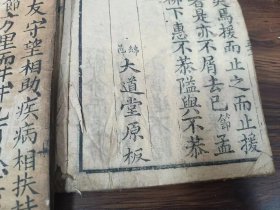 失焉援而止之而止援
者是亦不屑去已節孟
柳下惠不恭隘與不恭
繡
大道堂原板
友守望相助疾病相扶持
節方里而井井九百